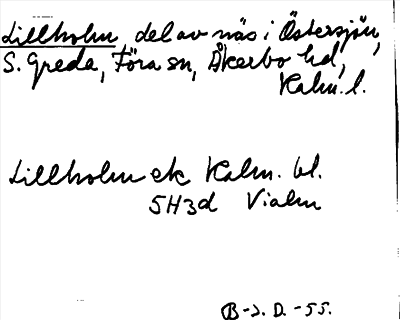 Lillholm del av näs i Östersjön,
S. Greda, Föra sn, Åkerbo hd,
Kalm. l.
Lillholm ek Kalm. bl.
5H3d Vialm
B-J. D. -55.